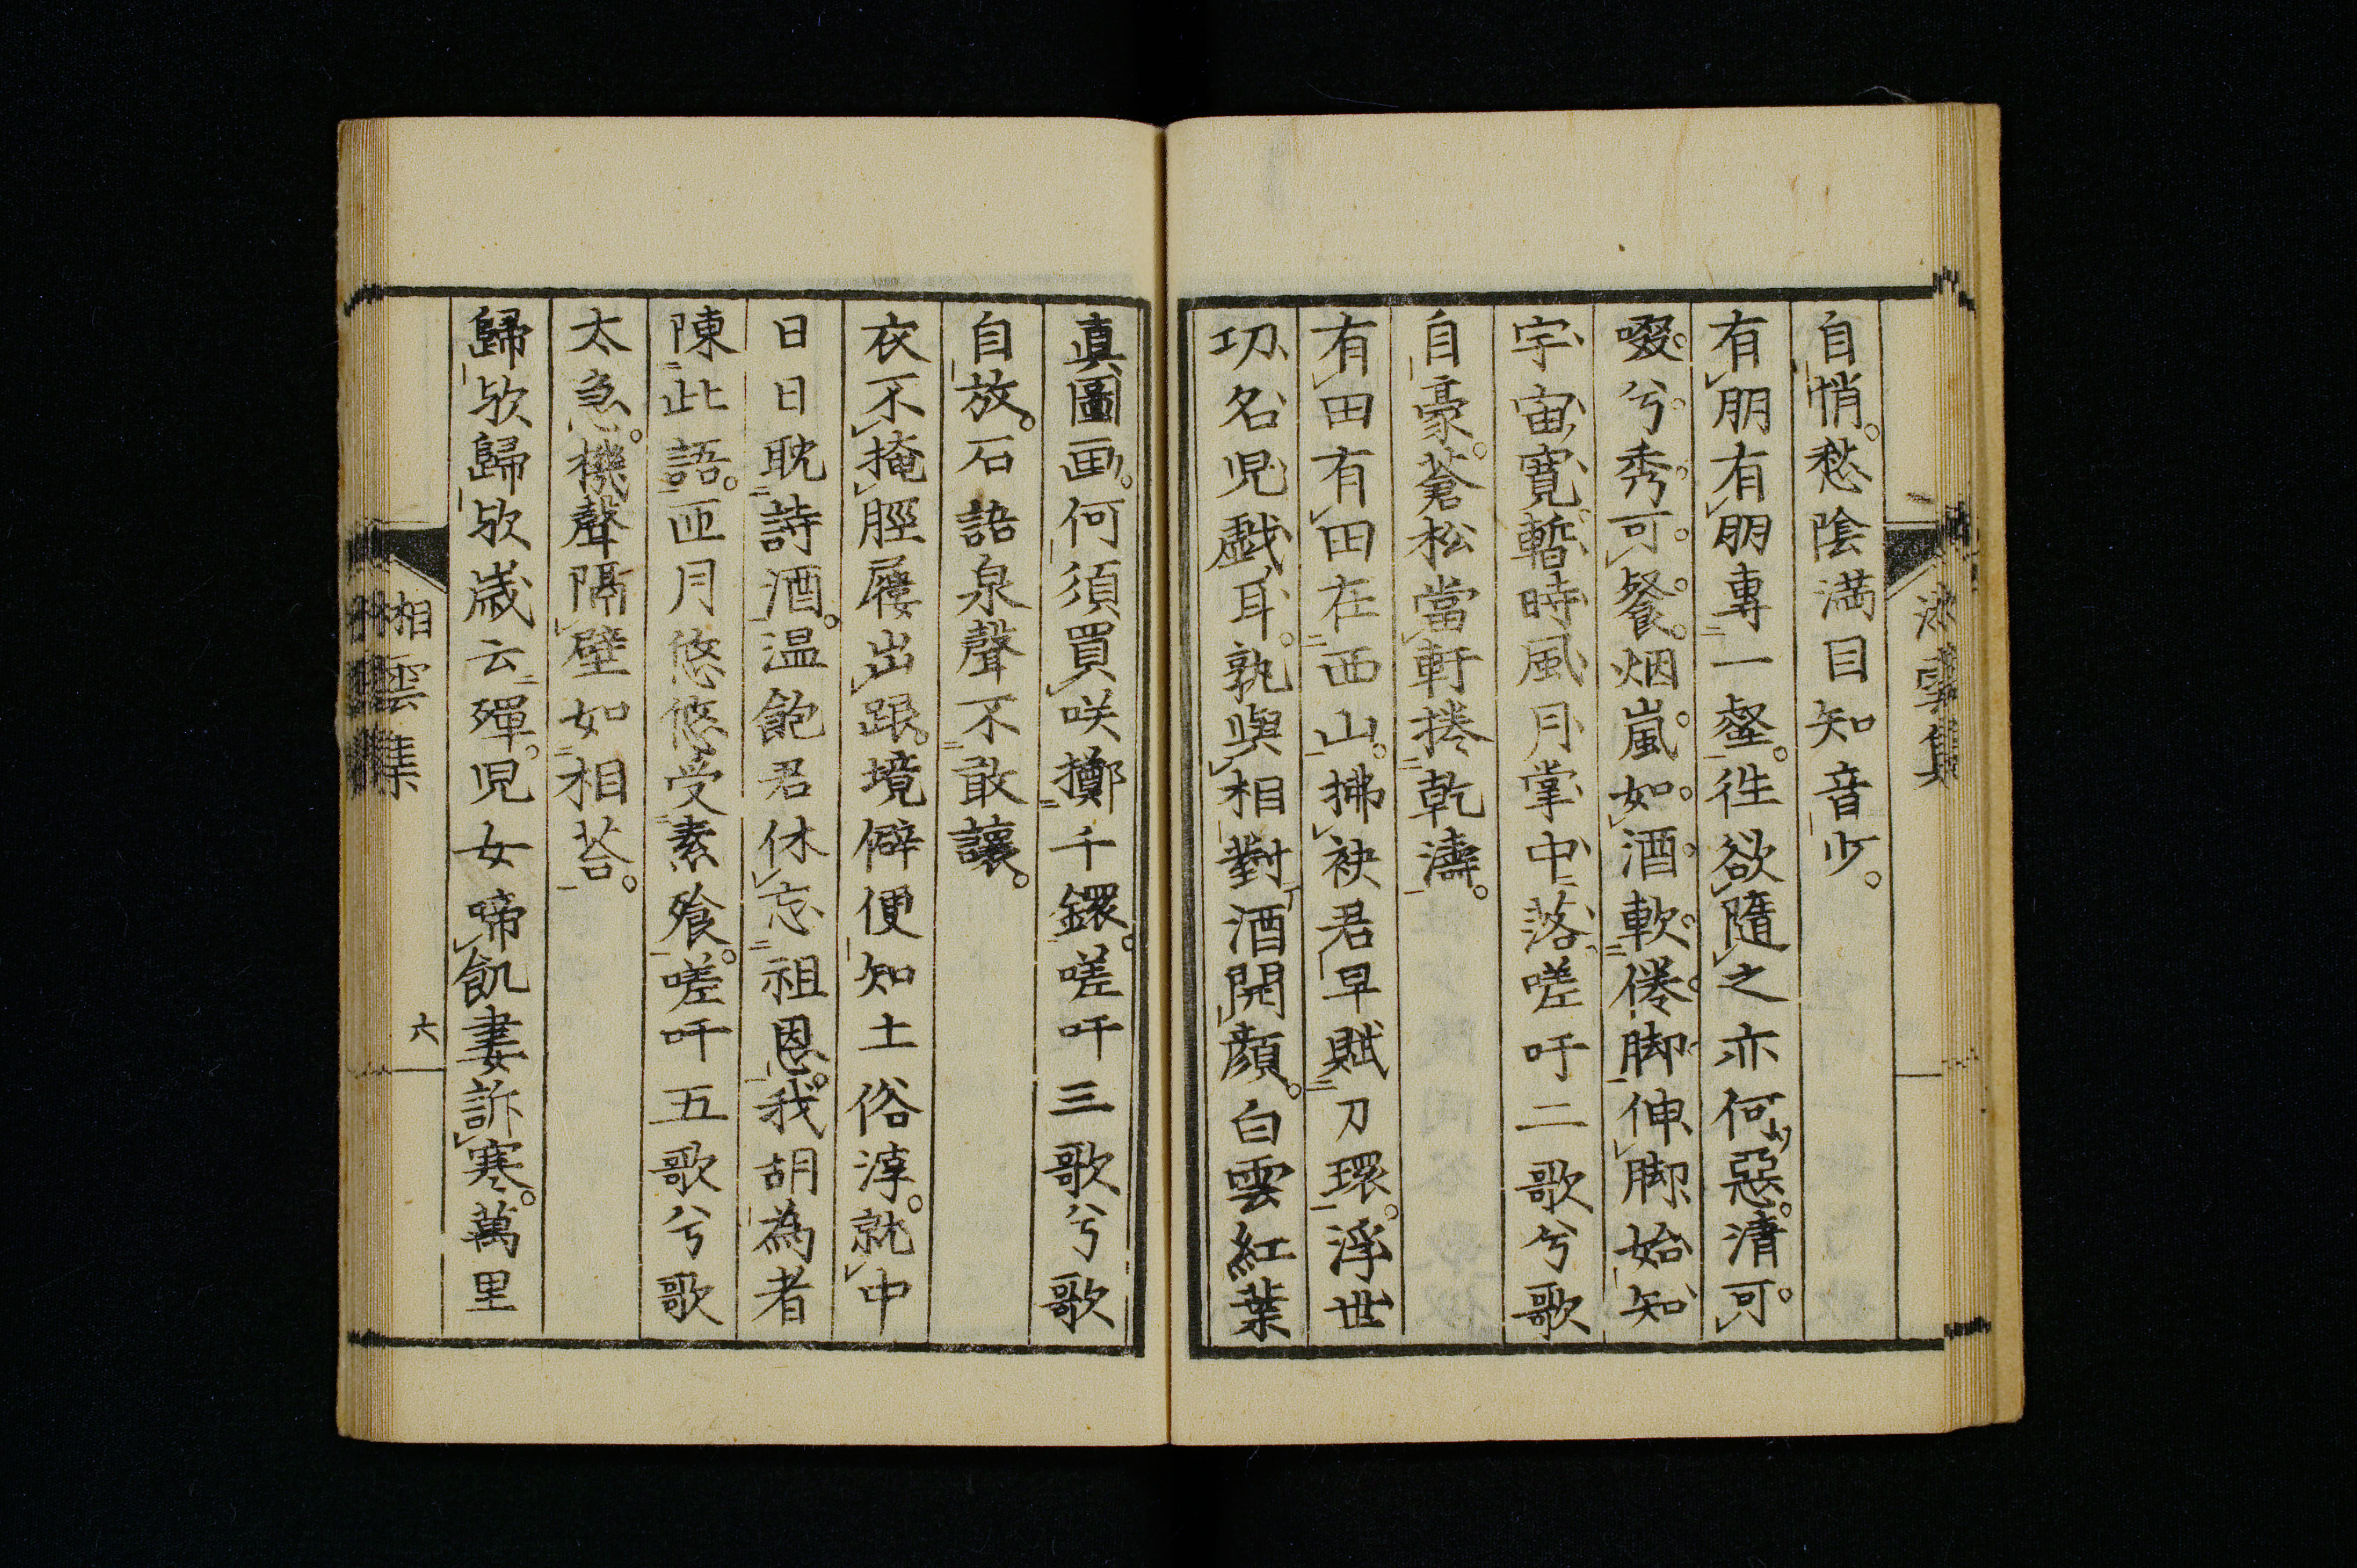 自悄。愁陰満目知音少。
有朋有朋專一壑。徃欲隨之亦何惡。清可
啜兮秀可餐。烟嵐如酒軟倦脚。伸脚始知
宇宙寛。暫時風月掌中落。嗟吁二歌兮歌
自豪。蒼松當軒捲乾濤。
有田有田在西山。拂袂君早賦刀環。浮世
功名児戯耳。孰與相對酒開顔。白雲紅葉
真圖画。何須買咲擲千鐶。嗟吁三歌兮歌
自放。石語泉聲不敢讓。
衣不掩脛屨出跟。境僻便知土俗淳。就中
日日耽詩酒。温飽君休忘祖恩。我胡為者
陳此語。匝月悠悠受素飱。嗟吁五歌兮歌
太急。機聲隔壁如相荅。
歸欤歸欤歳云殫。児女啼飢妻訴寒。萬里
相雲集
六